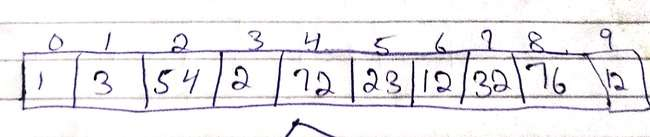 0 1 2 3 4 5 6 7 8 9
1 3 54 2 72 23 12 32 76 12